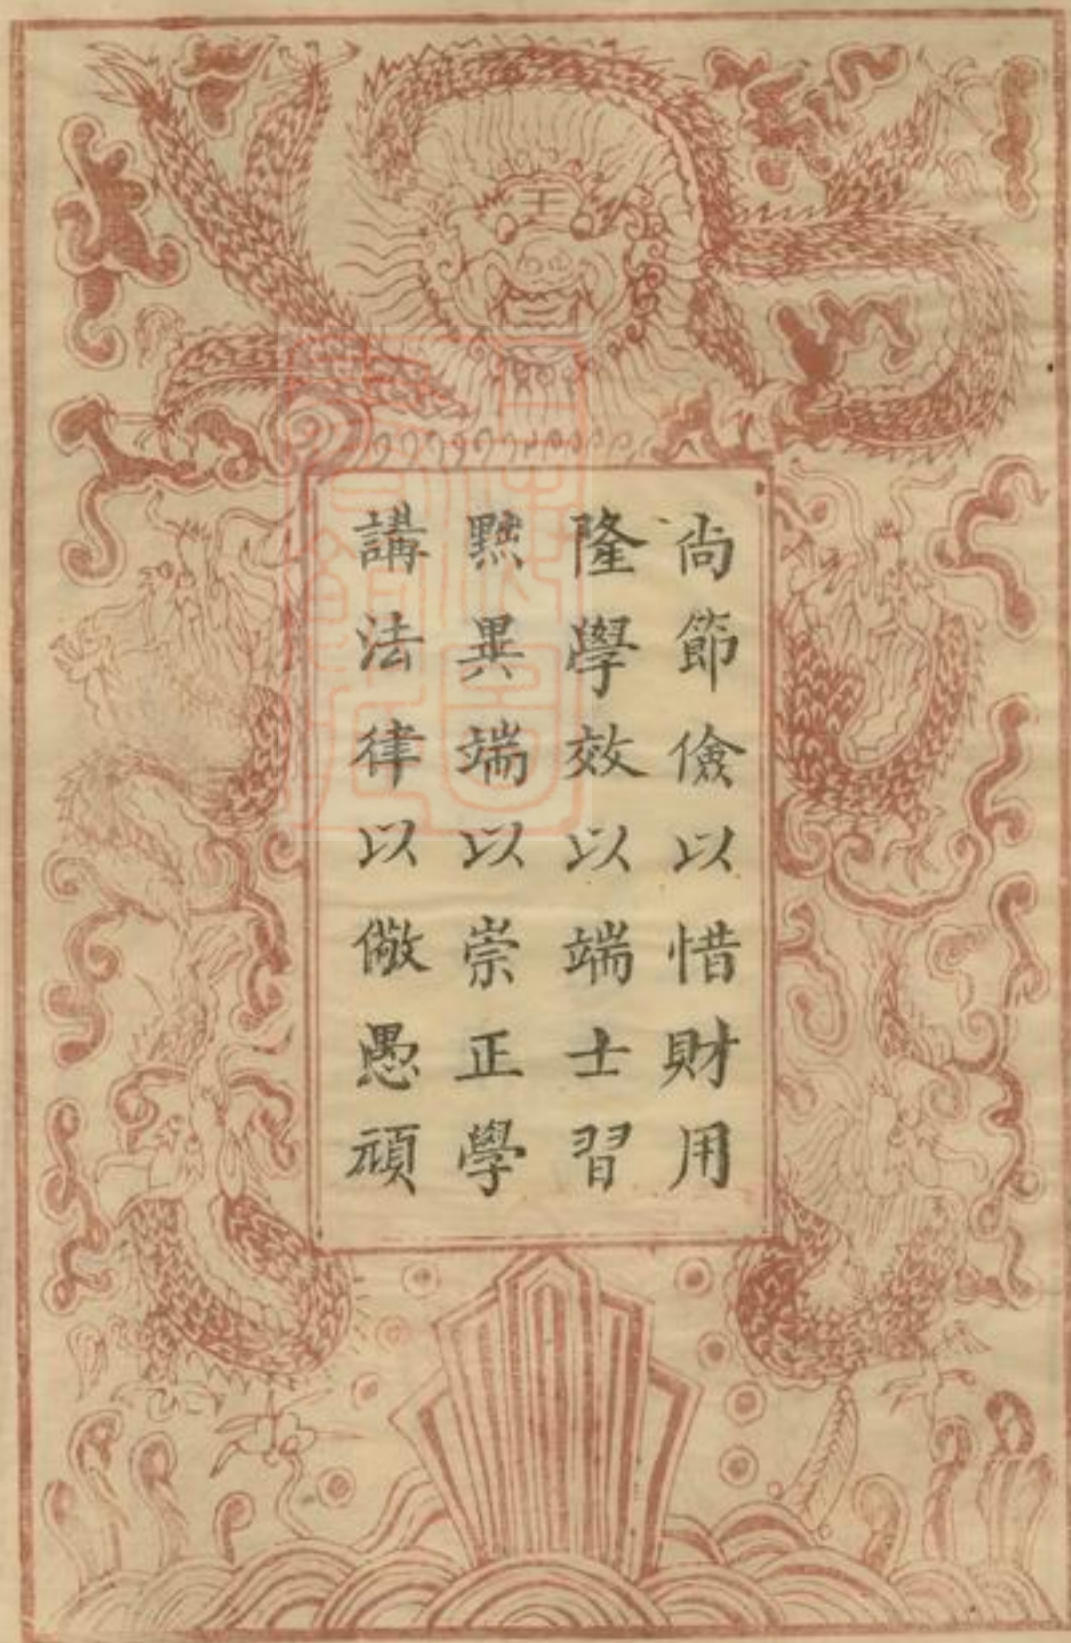 尚節儉以惜財用
隆學效以端士習
黜異端以崇正學
講法律以儆愚頑
王